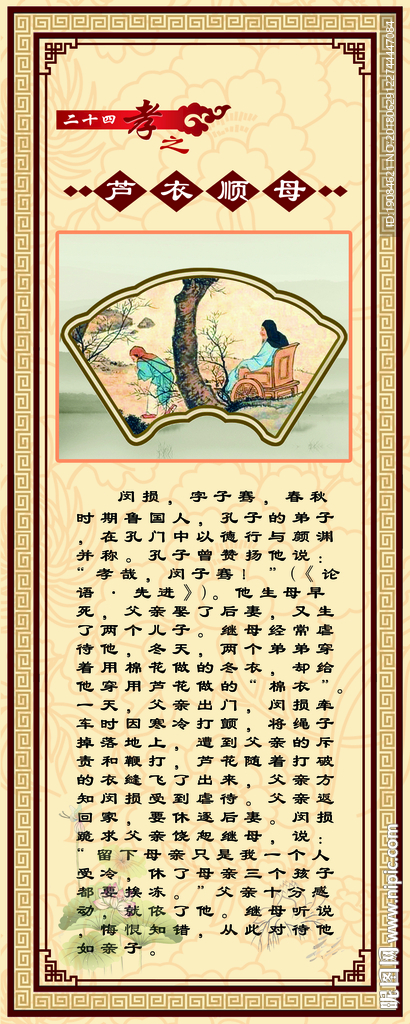 二十四
孝
之
芦衣顺母
闵损，字子骞，春秋
时期鲁国人，孔子的弟子
，在孔门中以德行与颜渊
并称。孔子曾赞扬他说：
“孝哉，闵子骞！”(《论
语·先进》)。他生母早
死，父亲娶了后妻，又生
了两个儿子。继母经常虐
待他，冬天，两个弟弟穿
着用棉花做的冬衣，却给
他穿用芦花做的“棉衣”。
一天，父亲出门，闵损牵
车时因寒冷打颤，将绳子
掉落地上，遭到父亲的斥
责和鞭打，芦花随着打破
的衣缝飞了出来，父亲方
知闵损受到虐待。父亲返
回家，要休逐后妻。闵损
跪求父亲饶恕继母，说：
“留下母亲只是我一个人
受冷，休了母亲三个孩子
都要挨冻。”父亲十分感
动，就依了他。继母听说
，悔恨知错，从此对待他
如亲子。
昵图网 www.nipic.com